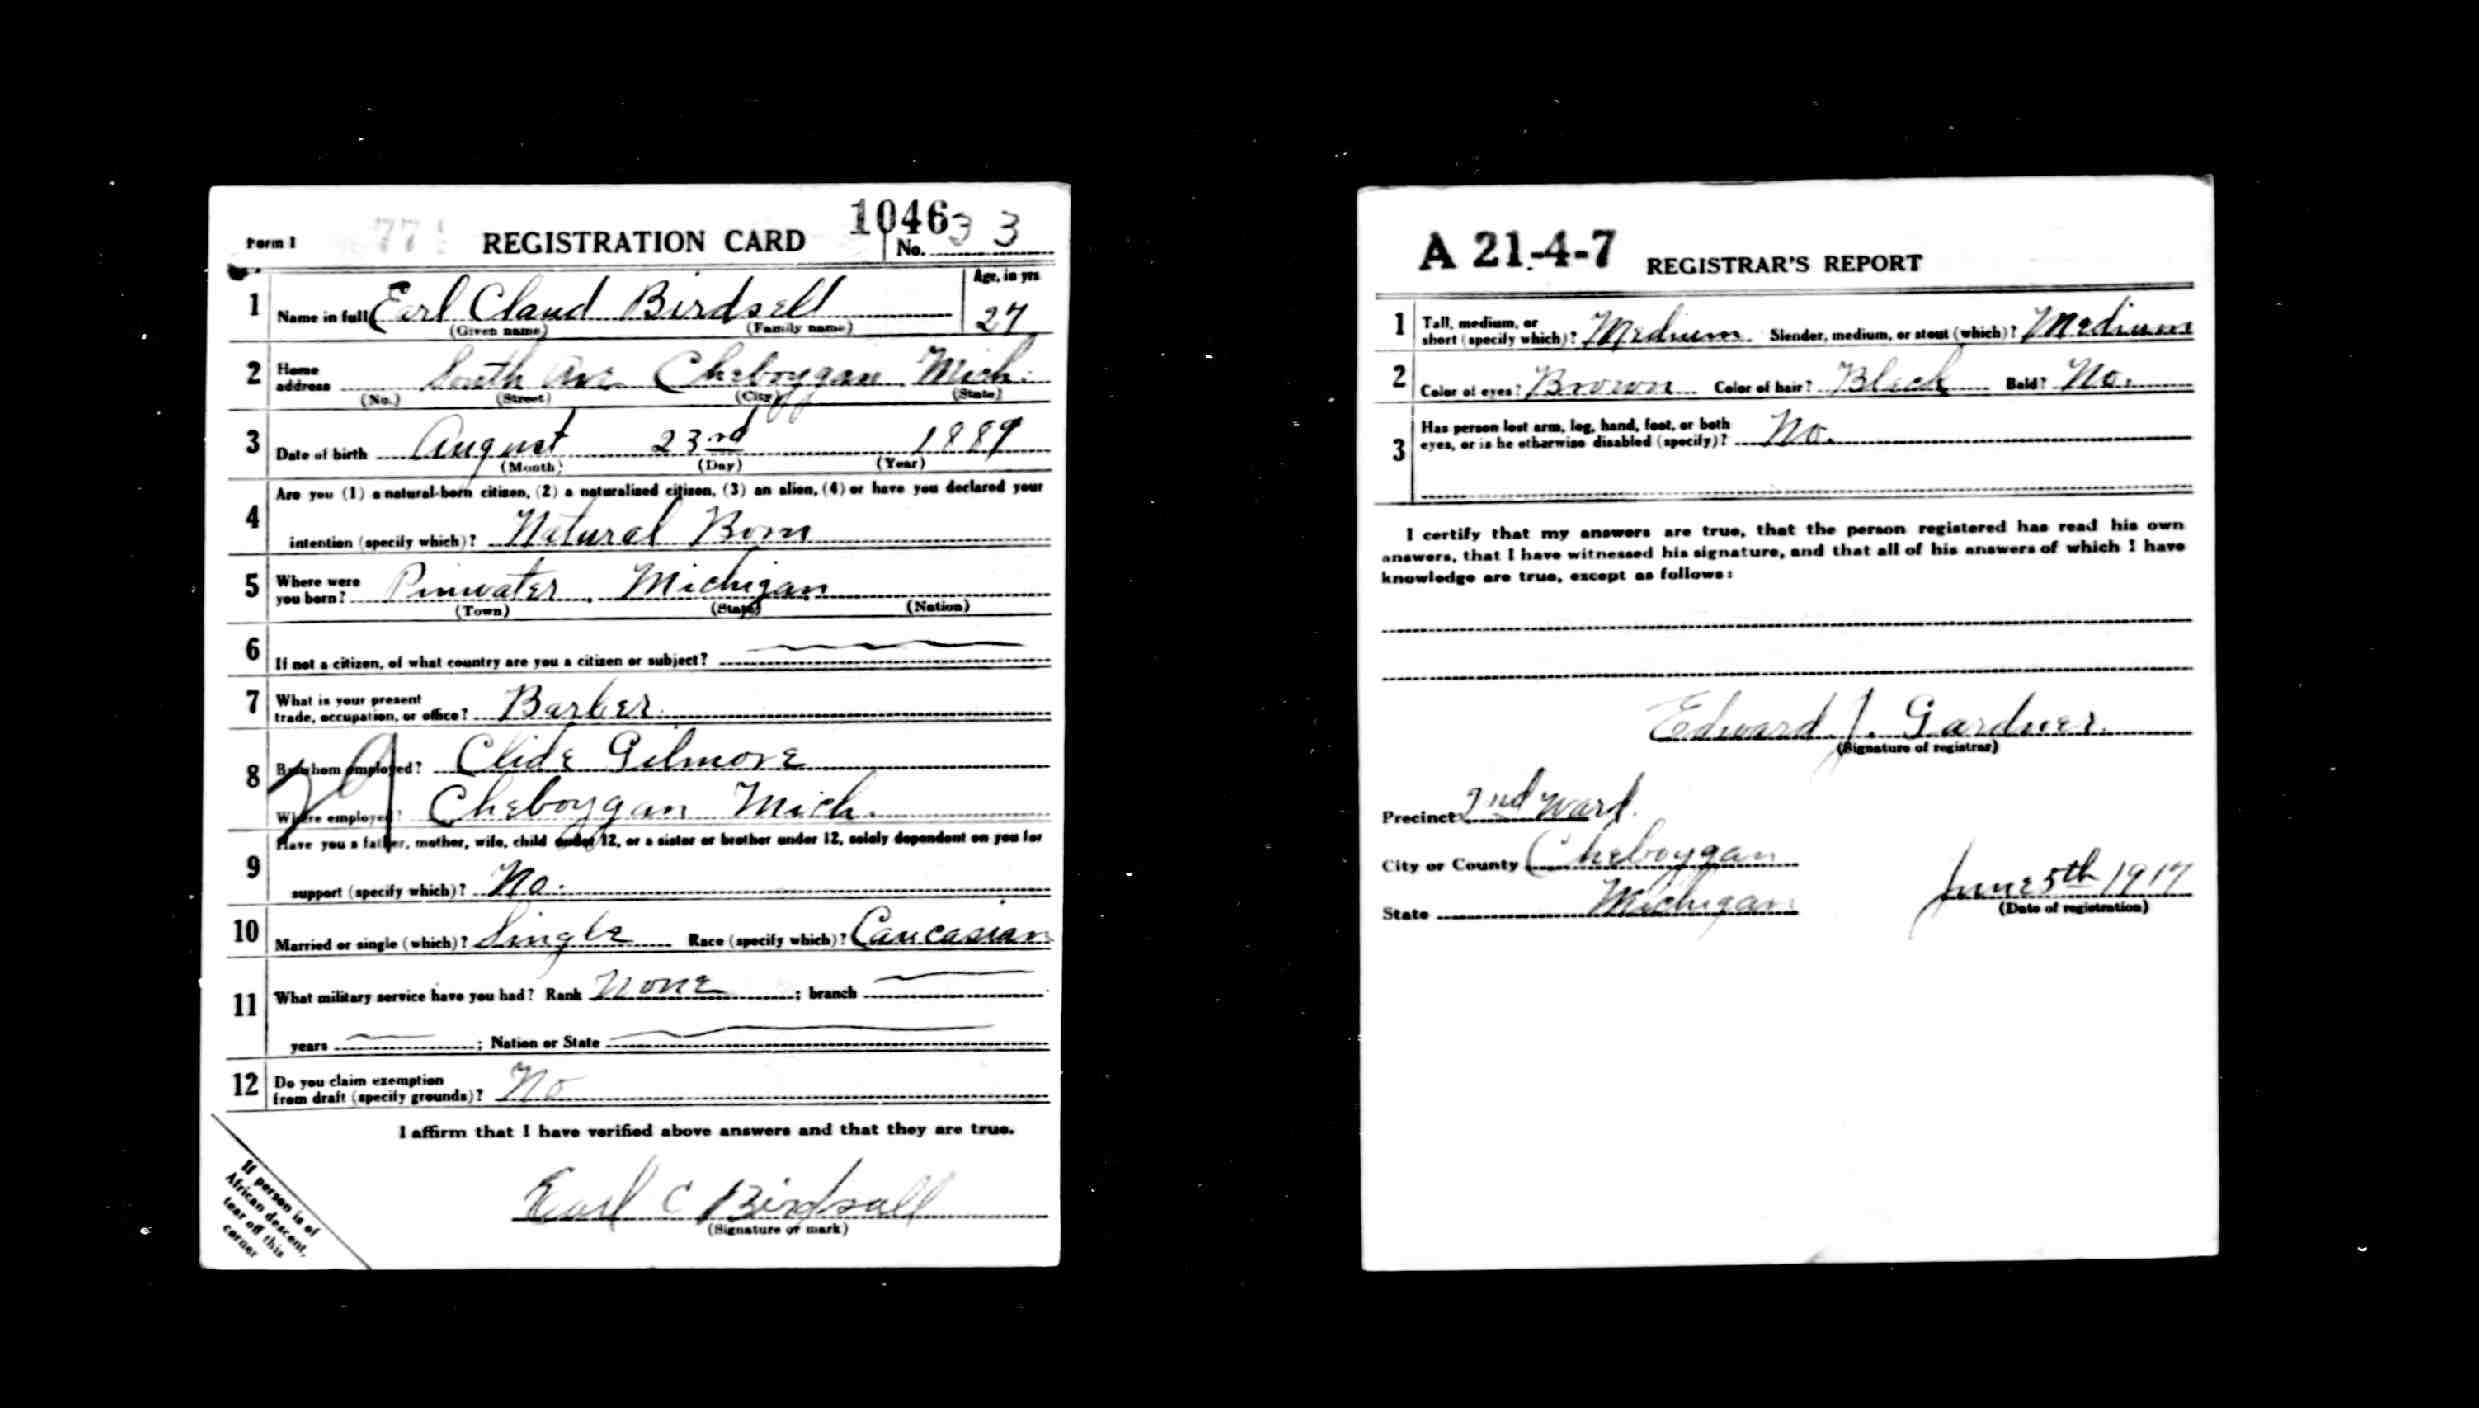 1046
Form 1 77 REGISTRATION CARD No. 33
1 Name in full Earl Claud Birdsell Age, in yrs
(Given name) (Family name) 27
2 Home address South Ave Cheboygan Mich.
(No.) (Street) (City) (State)
3 Date of birth August 23rd 1889
(Month) (Day) (Year)
4 Are you (1) a natural-born citizen, (2) a naturalized citizen, (3) an alien, (4) or have you declared your
intention (specify which)? Natural Born
5 Where were you born? Pinwater, Michigan
(Town) (State) (Nation)
6 If not a citizen, of what country are you a citizen or subject?
7 What is your present
trade, occupation, or office? Barber
8 By whom employed? Clide Gilmore
Where employed? Cheboygan Mich.
9 Have you a father, mother, wife, child under 12, or a sister or brother under 12, solely dependent on you for
support (specify which)? No.
10 Married or single (which)? Single Race (specify which)? Caucasian
11 What military service have you had? Rank None ; branch
years ; Nation or State
12 Do you claim exemption
from draft (specify grounds)? No
I affirm that I have verified above answers and that they are true.
Earl C Birdsall
(Signature or mark)
If person is of
African descent,
tear off this
corner
A 21-4-7 REGISTRAR'S REPORT
1 Tall, medium, or
short (specify which)? Medium Slender, medium, or stout (which)? Medium
2 Color of eyes? Brown Color of hair? Black Bald? No.
3 Has person lost arm, leg, hand, foot, or both
eyes, or is he otherwise disabled (specify)? No.
I certify that my answers are true, that the person registered has read his own
answers, that I have witnessed his signature, and that all of his answers of which I have
knowledge are true, except as follows:
Edward J. Gardner
(Signature of registrar)
Precinct 2nd Ward
City or County Cheboygan
State Michigan June 5th 1917
(Date of registration)